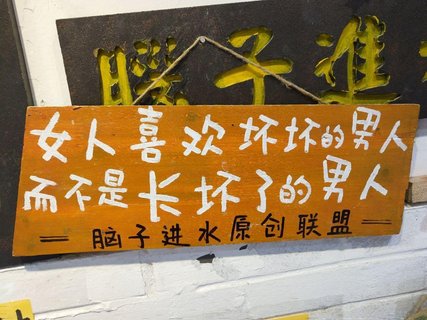 腦子進
女人喜欢坏坏的男人
而不是长坏了的男人
=脑子进水原创联盟=